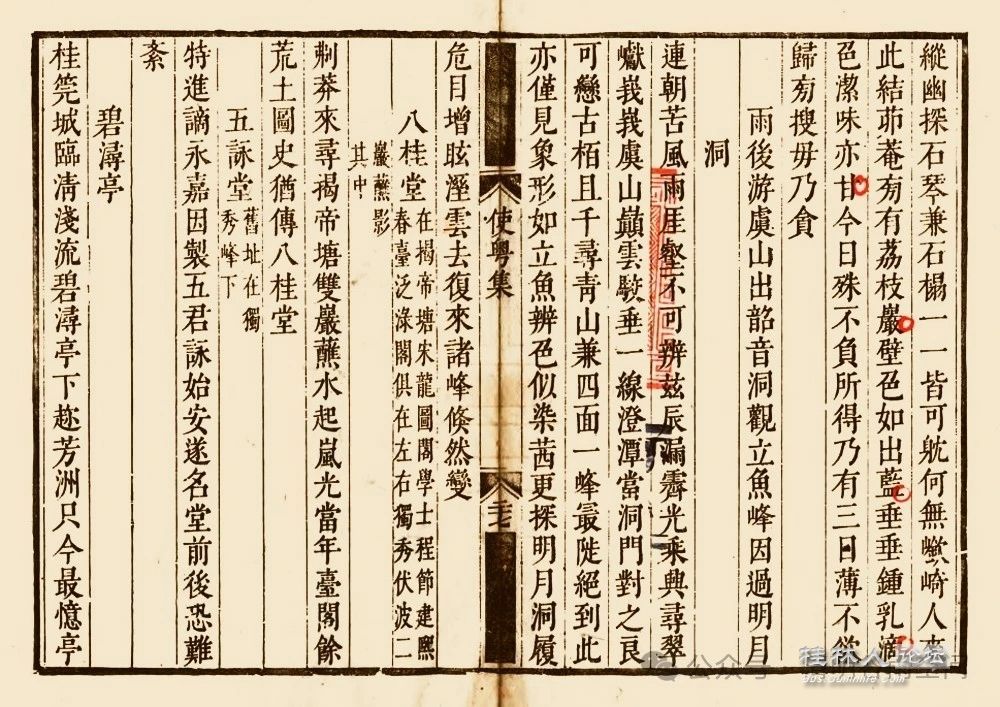 縱幽探石琴兼石榻一一皆可躭何無嶔崎人來
此結茆菴旁有荔枝巖壁色如出藍垂垂鍾乳滴
色潔味亦甘今日殊不負所得乃有三日薄不欲
歸旁搜毋乃貪
雨後游虞山出韶音洞觀立魚峰因過明月
洞
連朝苦風雨厓壑不可辨茲辰漏霽光乘興尋翠
巘峩峩虞山巔雲駮垂一線澄潭當洞門對之良
可戀古栢且千尋青山兼四面一峰最陡絕到此
亦僅見象形如立魚辨色似染茜更探明月洞履
使粵集
危目增眩溼雲去復來諸峰倐然變
八桂堂
在揭帝塘宋龍圖閣學士程節建熈
春臺泛淥閣俱在左右獨秀伏波二
巖蘸影
其中
荊莽來尋揭帝塘雙巖蘸水起嵐光當年臺閣餘
荒土圖史猶傳八桂堂
五詠堂
舊址在獨
秀峰下
特進謫永嘉因製五君詠始安遂名堂前後恐難
紊
碧潯亭
桂筦城臨清淺流碧潯亭下趂芳洲只今最憶亭
公众号
桂林人论坛